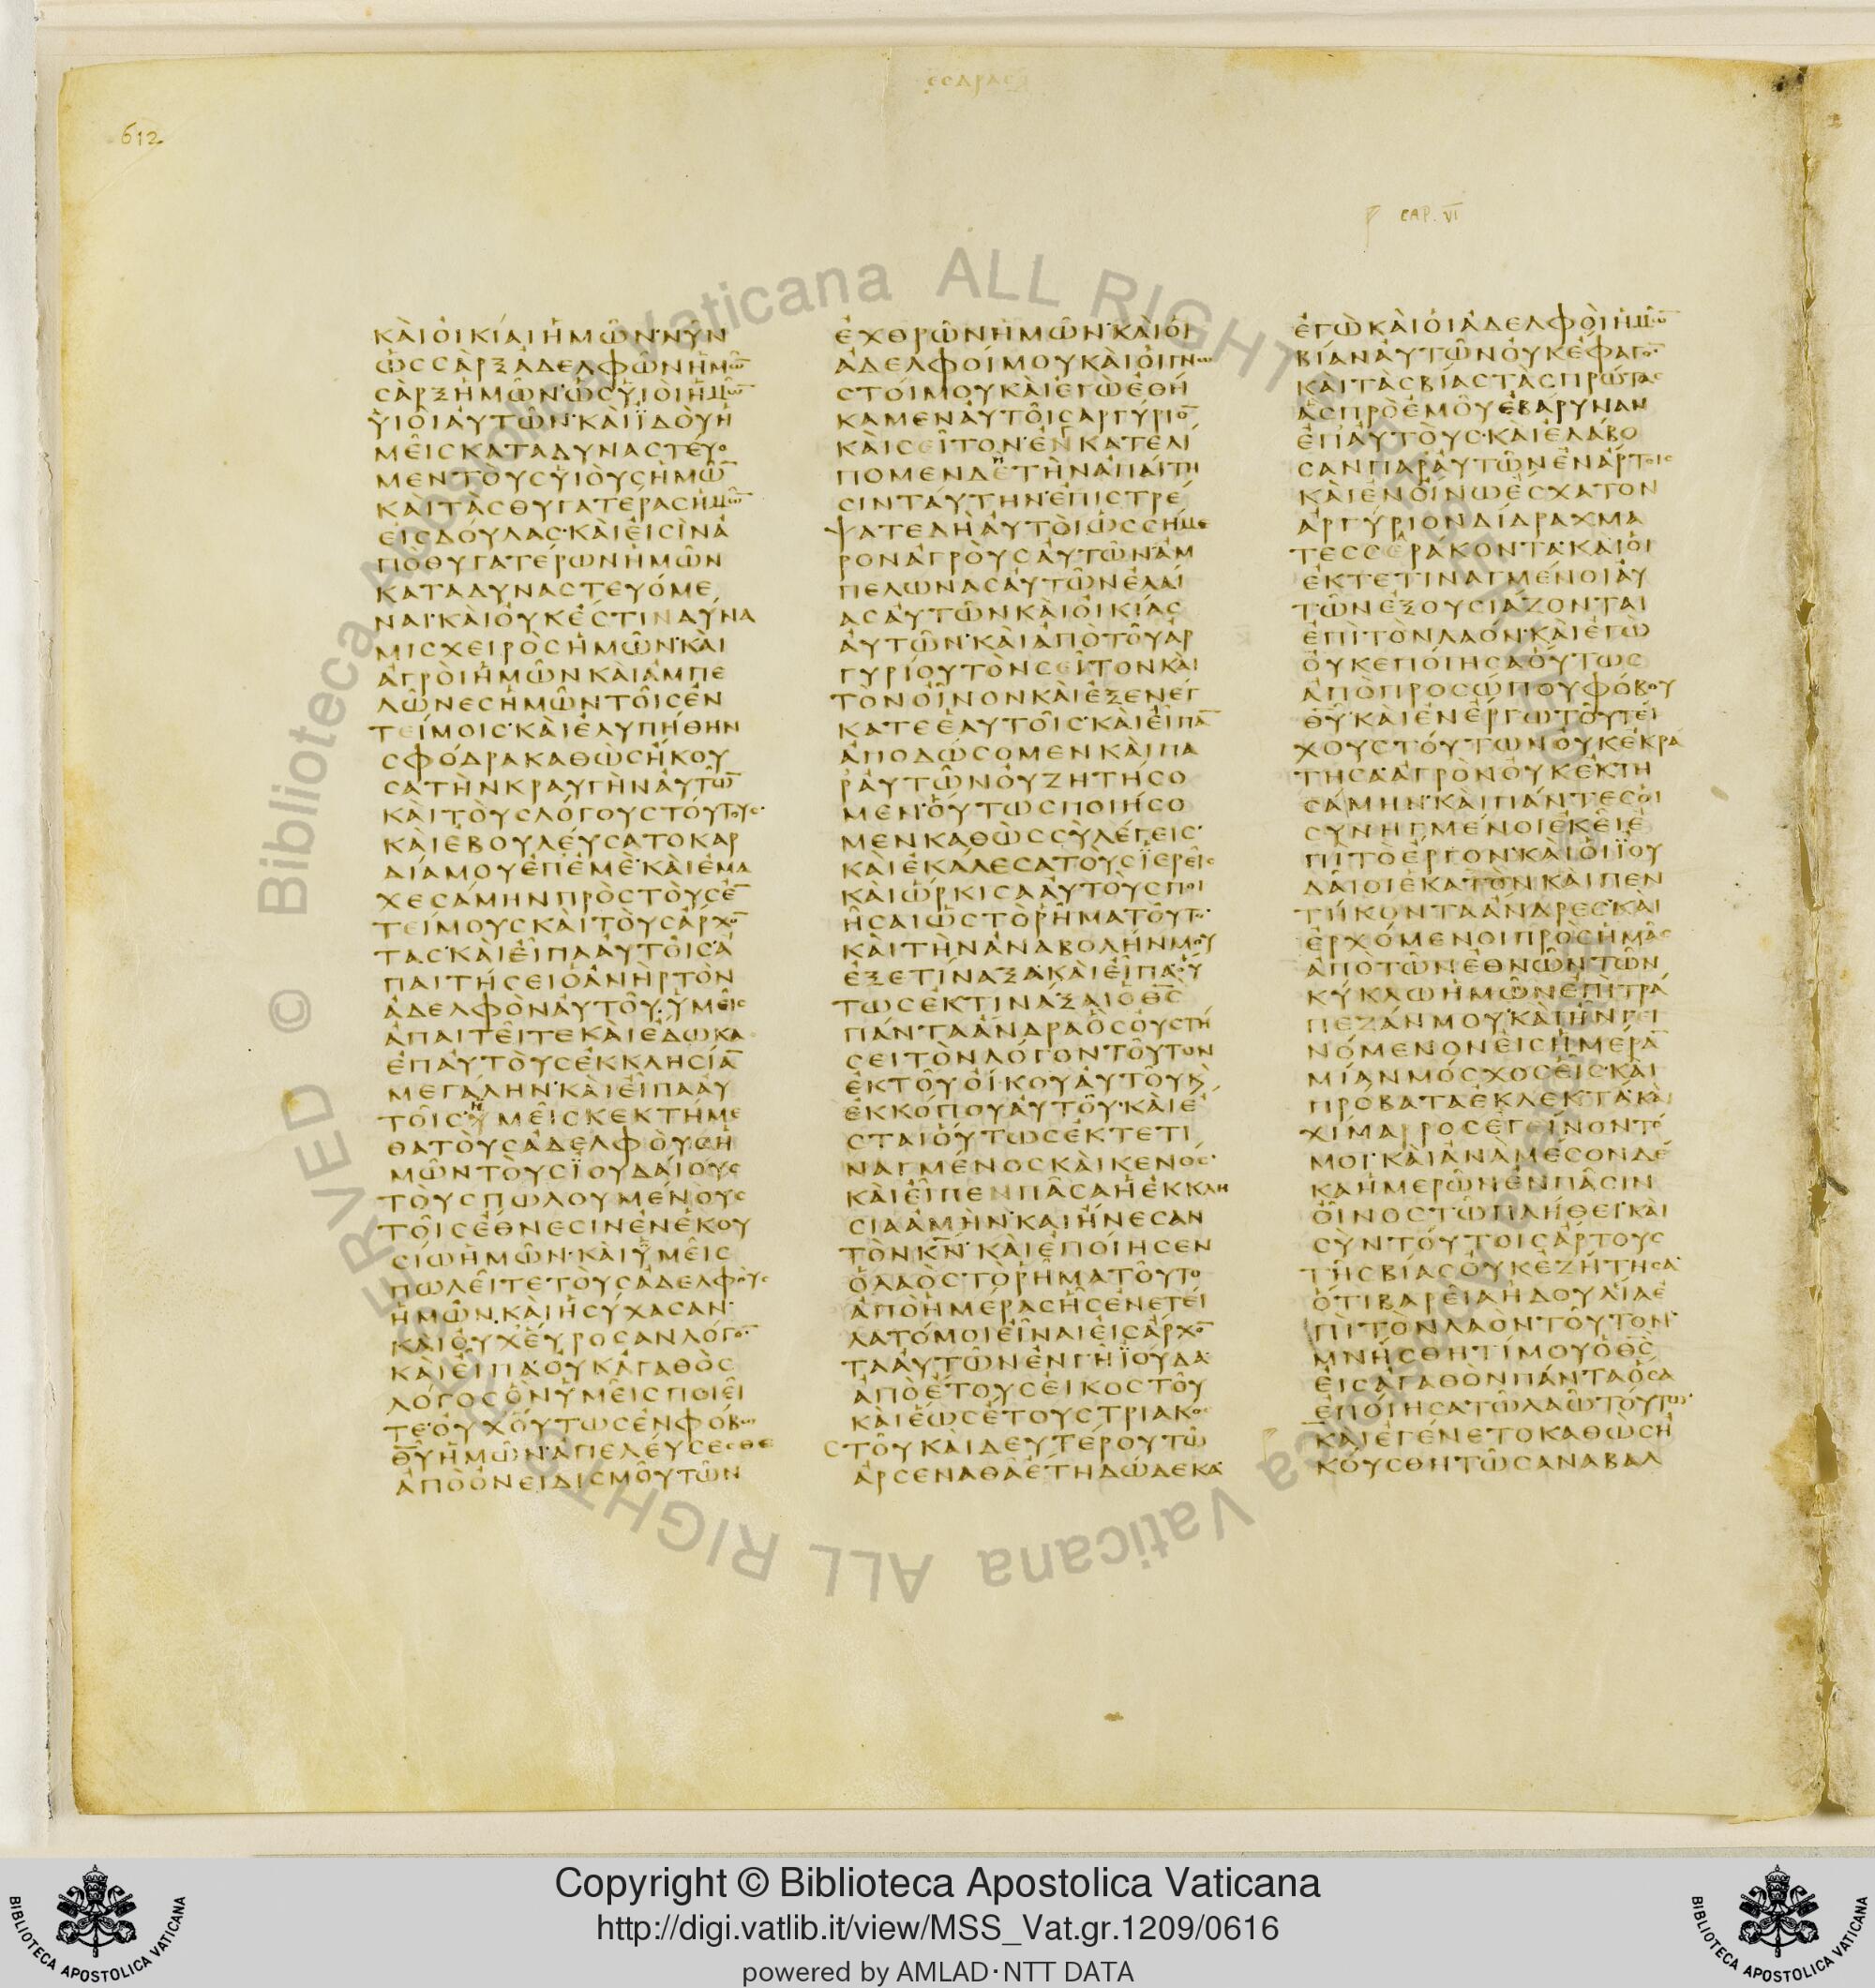 ΕΣΔΡΑΣ
612
CAP. VI
ΚΑΙΟΙΚΙΑΙΗΜΩΝ·ΝΥΝ
ΩϹϹΑΡΞΑΔΕΛΦΩΝΗΜΩ̅
ϹΑΡΞΗΜΩΝ·ΩϹΥΙΟΙΗΜΩ̅
ΥΙΟΙΑΥΤΩΝ·ΚΑΙΪΔΟΥΗ
ΜΕΙϹΚΑΤΑΔΥΝΑϹΤΕΥΟ
ΜΕΝΤΟΥϹΥΙΟΥϹΗΜΩ̅
ΚΑΙΤΑϹΘΥΓΑΤΕΡΑϹΗΜΩ̅
ΕΙϹΔΟΥΛΑϹ·ΚΑΙΕΙϹΙΝΑ
ΠΟΘΥΓΑΤΕΡΩΝΗΜΩΝ
ΚΑΤΑΔΥΝΑϹΤΕΥΟΜΕ
ΝΑΙ·ΚΑΙΟΥΚΕϹΤΙΝΔΥΝΑ
ΜΙϹΧΕΙΡΟϹΗΜΩΝ·ΚΑΙ
ΑΓΡΟΙΗΜΩΝΚΑΙΑΜΠΕ
ΛΩΝΕϹΗΜΩΝΤΟΙϹΕΝ
ΤΕΙΜΟΙϹ·ΚΑΙΕΛΥΠΗΘΗΝ
ϹΦΟΔΡΑΚΑΘΩϹΗΚΟΥ
ϹΑΤΗΝΚΡΑΥΓΗΝΑΥΤΩ̅
ΚΑΙΤΟΥϹΛΟΓΟΥϹΤΟΥΤΟΥϹ·
ΚΑΙΕΒΟΥΛΕΥϹΑΤΟΚΑΡ
ΔΙΑΜΟΥΕΠΕΜΕ·ΚΑΙΕΜΑ
ΧΕϹΑΜΗΝΠΡΟϹΤΟΥϹΕ̅
ΤΕΙΜΟΥϹΚΑΙΤΟΥϹΑΡΧΟ̅
ΤΑϹ·ΚΑΙΕΙΠΑΑΥΤΟΙϹ·Α
ΠΑΙΤΗϹΕΙΟΑΝΗΡΤΟΝ
ΑΔΕΛΦΟΝΑΥΤΟΥ·ΥΜΕΙϹ
ΑΠΑΙΤΕΙΤΕΚΑΙΕΔΩΚΑ
ΕΠΑΥΤΟΥϹΕΚΚΛΗϹΙΑ̅
ΜΕΓΑΛΗΝ·ΚΑΙΕΙΠΑΑΥ
ΤΟΙϹ·ΥΜΕΙϹΚΕΚΤΗΜΕ
ΘΑΤΟΥϹΑΔΕΛΦΟΥϹΗ
ΜΩΝΤΟΥϹΪΟΥΔΑΙΟΥϹ
ΤΟΥϹΠΩΛΟΥΜΕΝΟΥϹ
ΤΟΙϹΕΘΝΕϹΙΝΕΝΕΚΟΥ
ϹΙΩΗΜΩΝ·ΚΑΙΥΜΕΙϹ
ΠΩΛΕΙΤΕΤΟΥϹΑΔΕΛΦΟΥϹ
ΗΜΩΝ·ΚΑΙΗϹΥΧΑϹΑΝ·
ΚΑΙΟΥΧΕΥΡΟϹΑΝΛΟΓΟ̅·
ΚΑΙΕΙΠΑ·ΟΥΚΑΓΑΘΟϹ
ΛΟΓΟϹΟΝΥΜΕΙϹΠΟΙΕΙ
ΤΕ·ΟΥΧΟΥΤΩϹΕΝΦΟΒΩ
Θ̅Υ̅ΗΜΩΝΑΠΕΛΕΥϹΕϹΘΕ
ΑΠΟΟΝΕΙΔΙϹΜΟΥΤΩΝ
ΕΧΘΡΩΝΗΜΩΝ·ΚΑΙΟΙ
ΑΔΕΛΦΟΙΜΟΥΚΑΙΟΙΓΝΩ
ϹΤΟΙΜΟΥΚΑΙΕΓΩΕΘΗ
ΚΑΜΕΝΑΥΤΟΙϹΑΡΓΥΡΙΟ̅
ΚΑΙϹΕΙΤΟΝ·ΕΝΚΑΤΕΛΙ
ΠΟΜΕΝΔΕΤΗΝΑΠΑΙΤΗ
ϹΙΝΤΑΥΤΗΝ·ΕΠΙϹΤΡΕ
ΨΑΤΕΔΗΑΥΤΟΙΩϹϹΗΜΕ
ΡΟΝΑΓΡΟΥϹΑΥΤΩΝ·ΑΜ
ΠΕΛΩΝΑϹΑΥΤΩΝΕΛΑΙ
ΑϹΑΥΤΩΝΚΑΙΟΙΚΙΑϹ
ΑΥΤΩΝ·ΚΑΙΑΠΟΤΟΥΑΡ
ΓΥΡΙΟΥΤΟΝϹΕΙΤΟΝΚΑΙ
ΤΟΝΟΙΝΟΝΚΑΙΕΞΕΝΕΓ
ΚΑΤΕΕΑΥΤΟΙϹ·ΚΑΙΕΙΠΑ̅
ΑΠΟΔΩϹΟΜΕΝΚΑΙΠΑ
ΡΑΥΤΩΝΟΥΖΗΤΗϹΟ
ΜΕΝ·ΟΥΤΩϹΠΟΙΗϹΟ
ΜΕΝΚΑΘΩϹϹΥΛΕΓΕΙϹ·
ΚΑΙΕΚΑΛΕϹΑΤΟΥϹΪΕΡΕΙϹ
ΚΑΙΩΡΚΙϹΑΑΥΤΟΥϹΠΟΙ
ΗϹΑΙΩϹΤΟΡΗΜΑΤΟΥΤΟ·
ΚΑΙΤΗΝΑΝΑΒΟΛΗΝΜΟΥ
ΕΞΕΤΙΝΑΞΑΚΑΙΕΙΠΑ·ΟΥ
ΤΩϹΕΚΤΙΝΑΞΑΙΟΘ̅Ϲ̅
ΠΑΝΤΑΑΝΔΡΑΟϹΟΥϹΤΗ
ϹΕΙΤΟΝΛΟΓΟΝΤΟΥΤΟΝ
ΕΚΤΟΥΟΙΚΟΥΑΥΤΟΥΚ̀
ΕΚΚΟΠΟΥΑΥΤΟΥ·ΚΑΙΕ
ϹΤΑΙΟΥΤΩϹΕΚΤΕΤΙ
ΝΑΓΜΕΝΟϹΚΑΙΚΕΝΟϹ·
ΚΑΙΕΙΠΕΝΠΑϹΑΗΕΚΚΛΗ
ϹΙΑΑΜΗΝ·ΚΑΙΗΝΕϹΑΝ
ΤΟΝΚ̅Ν̅·ΚΑΙΕΠΟΙΗϹΕΝ
ΟΛΑΟϹΤΟΡΗΜΑΤΟΥΤΟ
ΑΠΟΗΜΕΡΑϹΗϹΕΝΕΤΕΙ
ΛΑΤΟΜΟΙΕΙΝΑΙΕΙϹΑΡΧΟ̅
ΤΑΑΥΤΩΝΕΝΓΗΪΟΥΔΑ·
ΑΠΟΕΤΟΥϹΕΙΚΟϹΤΟΥ
ΚΑΙΕΩϹΕΤΟΥϹΤΡΙΑΚΟ
ϹΤΟΥΚΑΙΔΕΥΤΕΡΟΥΤΩ
ΑΡϹΕΝΑΘΑΕΤΗΔΩΔΕΚΑ·
ΕΓΩΚΑΙΟΙΑΔΕΛΦΟΙΗΜΩ̅
ΒΙΑΝΑΥΤΩΝΟΥΚΕΦΑΓΟ̅·
ΚΑΙΤΑϹΒΙΑϹΤΑϹΠΡΩΤΑϹ
ΑϹΠΡΟΕΜΟΥΕΒΑΡΥΝΑΝ
ΕΠΑΥΤΟΥϹ·ΚΑΙΕΛΑΒΟ
ϹΑΝΠΑΡΑΥΤΩΝΕΝΑΡΤΟΙϹ
ΚΑΙΕΝΟΙΝΩΕϹΧΑΤΟΝ
ΑΡΓΥΡΙΟΝΔΙΔΡΑΧΜΑ
ΤΕϹϹΕΡΑΚΟΝΤΑ·ΚΑΙΟΙ
ΕΚΤΕΤΙΝΑΓΜΕΝΟΙΑΥ
ΤΩΝΕΞΟΥϹΙΑΖΟΝΤΑΙ
ΕΠΙΤΟΝΛΑΟΝ·ΚΑΙΕΓΩ
ΟΥΚΕΠΟΙΗϹΑΟΥΤΩϹ
ΑΠΟΠΡΟϹΩΠΟΥΦΟΒΟΥ
Θ̅Υ̅·ΚΑΙΕΝΕΡΓΩΤΟΥΤΕΙ
ΧΟΥϹΤΟΥΤΩΝΟΥΚΕΚΡΑ
ΤΗϹΑ·ΑΓΡΟΝΟΥΚΕΚΤΗ
ϹΑΜΗΝ·ΚΑΙΠΑΝΤΕϹΟΙ
ϹΥΝΗΓΜΕΝΟΙΕΚΕΙΕ
ΠΙΤΟΕΡΓΟΝ·ΚΑΙΟΙΪΟΥ
ΔΑΙΟΙΕΚΑΤΟΝΚΑΙΠΕΝ
ΤΗΚΟΝΤΑΑΝΔΡΕϹ·ΚΑΙ
ΕΡΧΟΜΕΝΟΙΠΡΟϹΗΜΑϹ
ΑΠΟΤΩΝΕΘΝΩΝΤΩΝ
ΚΥΚΛΩΗΜΩΝΕΠΙΤΡΑ
ΠΕΖΑΝΜΟΥ·ΚΑΙΗΝΓΕΙ
ΝΟΜΕΝΟΝΕΙϹΗΜΕΡΑ̅
ΜΙΑΝΜΟϹΧΟϹΕΙϹ·ΚΑΙ
ΠΡΟΒΑΤΑΕΚΛΕΚΤΑ·ΚΑΙ
ΧΙΜΑΡΡΟϹΕΓΕΙΝΟΝΤΟ
ΜΟΙ·ΚΑΙΑΝΑΜΕϹΟΝΔΕ
ΚΑΗΜΕΡΩΝΕΝΠΑϹΙΝ
ΟΙΝΟϹΤΩΠΛΗΘΕΙ·ΚΑΙ
ϹΥΝΤΟΥΤΟΙϹΑΡΤΟΥϹ
ΤΗϹΒΙΑϹΟΥΚΕΖΗΤΗϹΑ·
ΟΤΙΒΑΡΕΙΑΗΔΟΥΛΙΑΕ
ΠΙΤΟΝΛΑΟΝΤΟΥΤΟΝ·
ΜΝΗϹΘΗΤΙΜΟΥΟΘ̅Ϲ̅
ΕΙϹΑΓΑΘΟΝΠΑΝΤΑΟϹΑ
ΕΠΟΙΗϹΑΤΩΛΑΩΤΟΥΤΩ·
ΚΑΙΕΓΕΝΕΤΟΚΑΘΩϹΗ
ΚΟΥϹΘΗΤΩϹΑΝΑΒΑΛ
Copyright © Biblioteca Apostolica Vaticana
http://digi.vatlib.it/view/MSS_Vat.gr.1209/0616
powered by AMLAD·NTT DATA
BIBLIOTECA APOSTOLICA VATICANA
BIBLIOTECA APOSTOLICA VATICANA